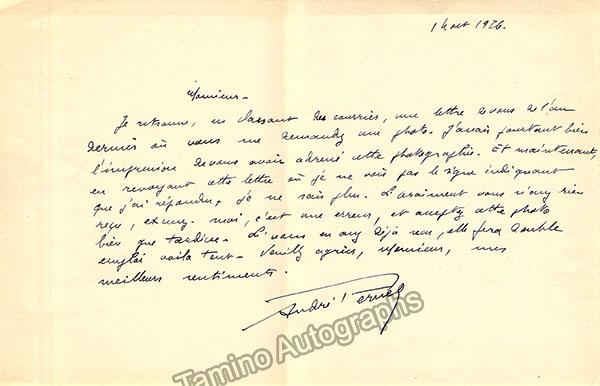 1 Aout 1926.
Monsieur -
Je retrouve, en classant des courriers, une lettre de vous de l'an
dernier où vous me demandez une photo. J'avais pourtant bien
l'impression de vous avoir adressé cette photographie. Et maintenant,
en revoyant cette lettre où je ne vois pas le signe indiquant
que j'ai répondu, je ne sais plus. Si vraiment vous n'avez rien
reçu, excusez-moi, c'est une erreur, et acceptez cette photo
bien que tardive. Si vous en avez déjà reçu, elle fera double
emploi voilà tout. Veuillez agréer, Monsieur, mes
meilleurs sentiments.
André Pernet
Tamino Autographs